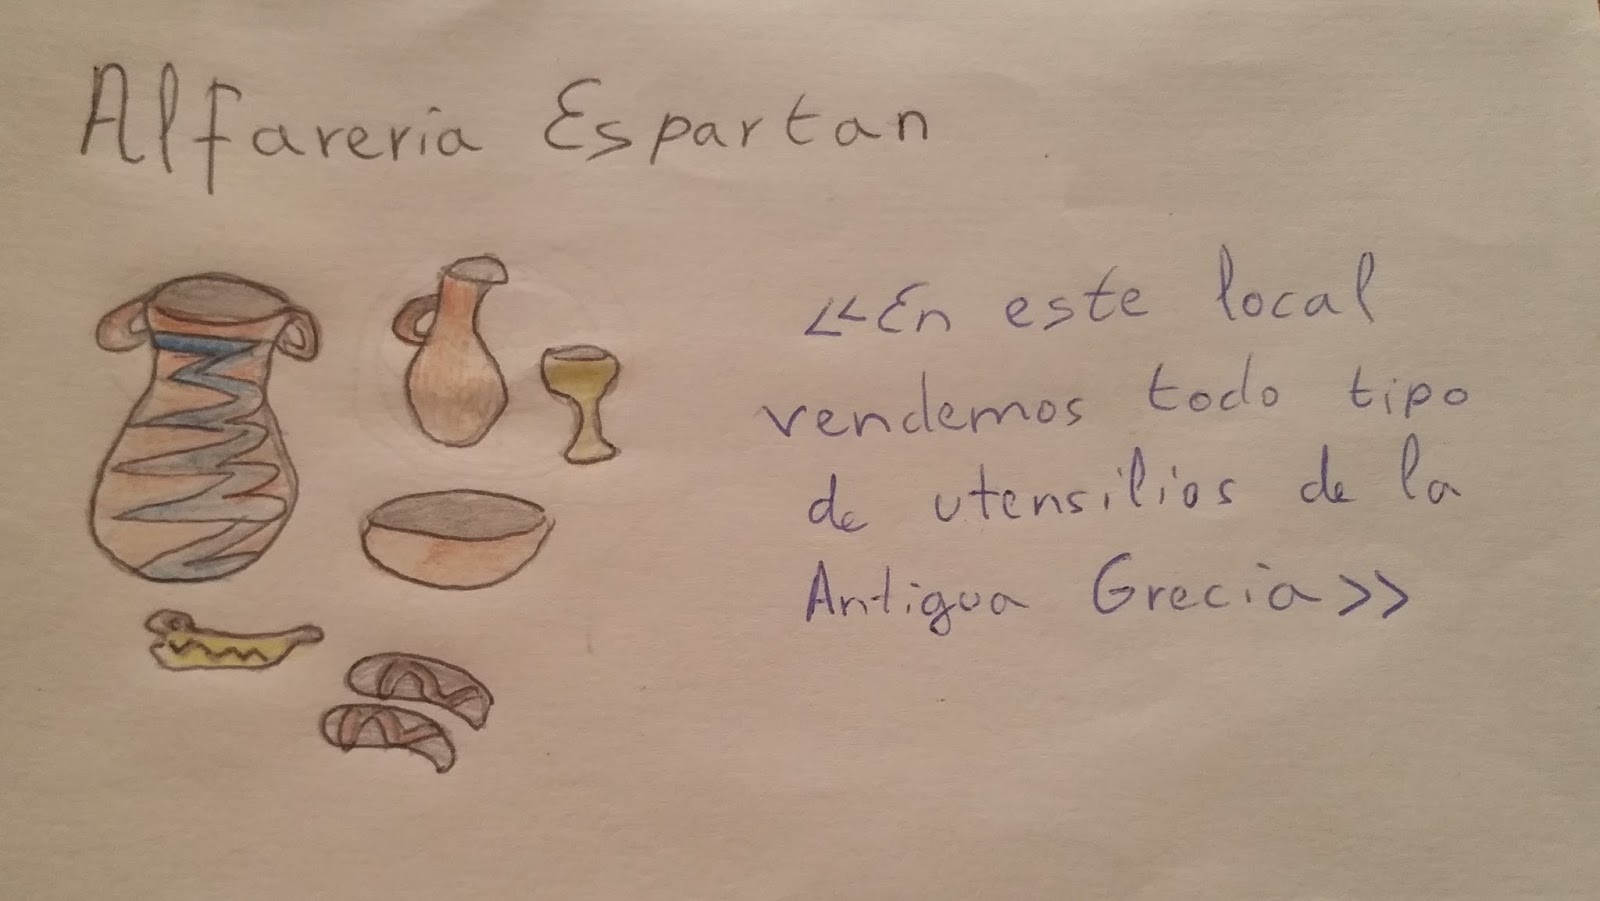 Alfareria Espartan
<<En este local
vendemos todo tipo
de utensilios de la
Antigua Grecia>>